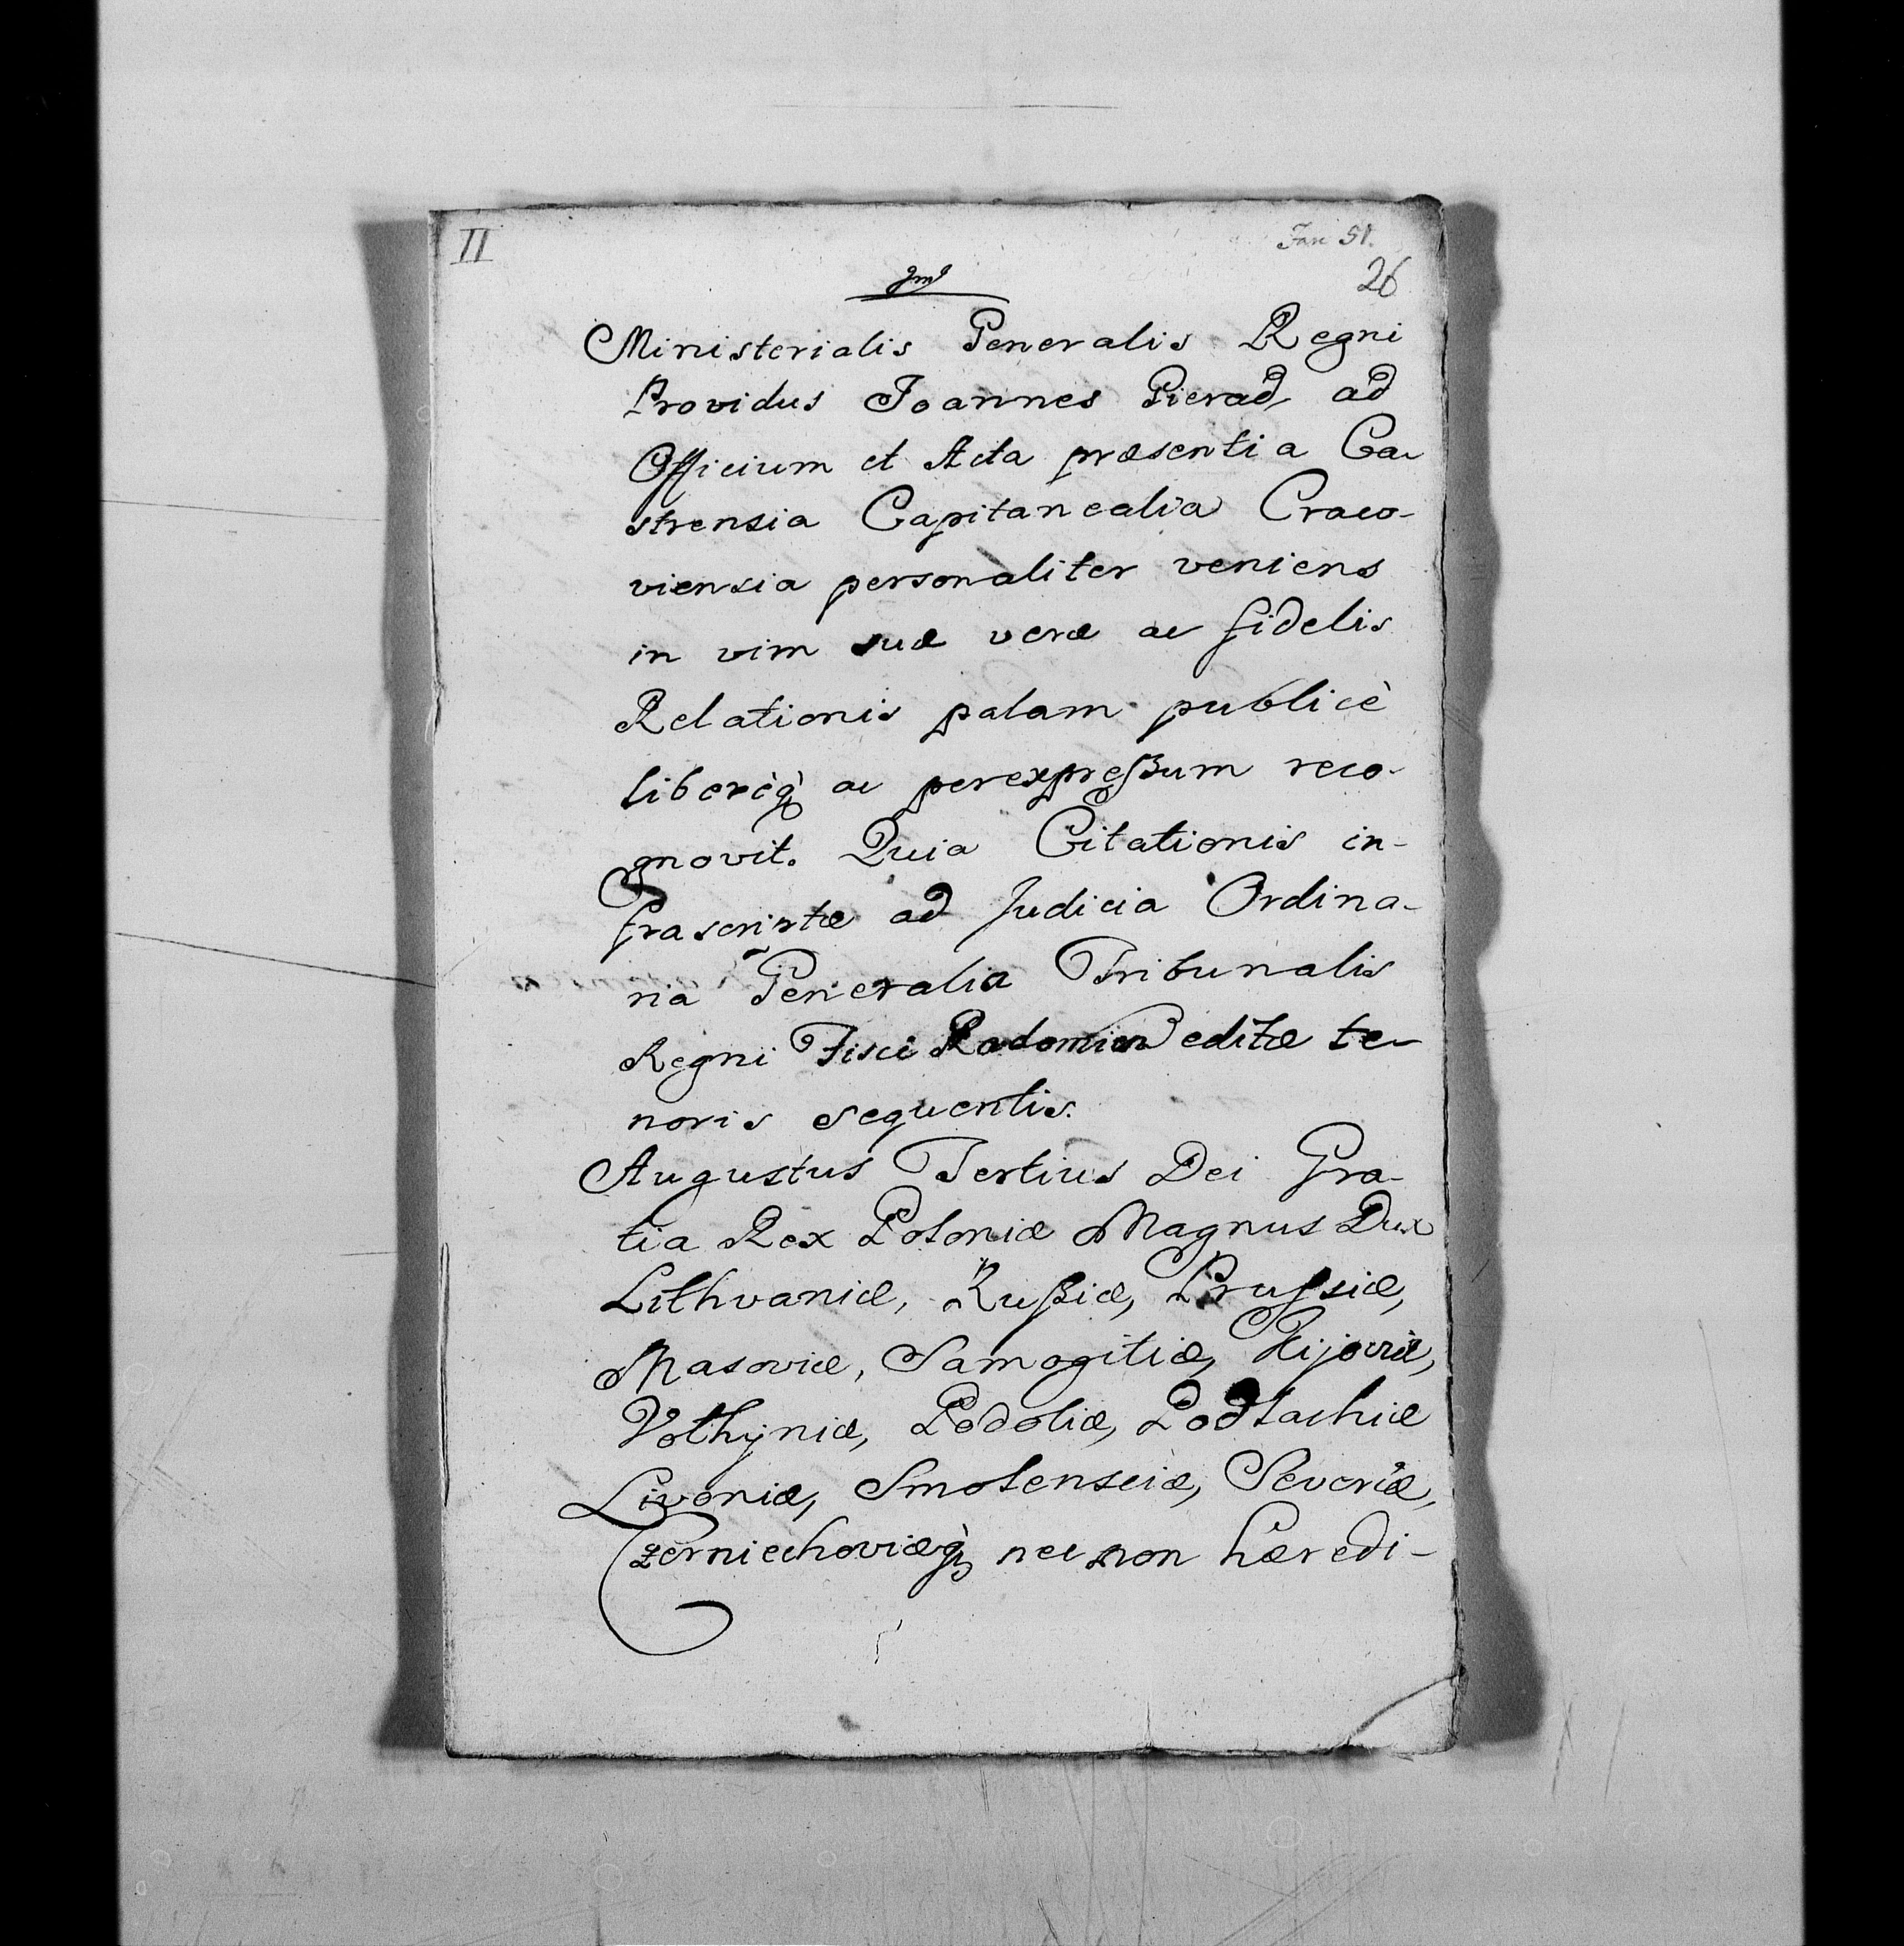 II
Fan 51.
26
Ministerialis Generalis Regni
Providus Joannes Pierad, ad
Officium et Acta præsentia Ca-
strensia Capitanealia Craco-
viensia personaliter veniens
in vim suæ veræ ac fidelis
Relationis palam publicè
liberèq̀ ac perexpreßum reco-
gnovit. Quia Citationis in-
frascriptæ ad Judicia Ordina-
ria Generalia Tribunalis
Regni Fisci Radomien editæ te-
noris sequentis.
Augustus Tertius Dei Gra-
tia Rex Poloniæ Magnus Dux
Lithvaniæ, Rußiæ, Prussiæ,
Masoviæ, Samogitiæ, Kijoviæ,
Volhyniæ, Podoliæ, Podlachiæ
Livoniæ, Smolensciæ, Severiæ,
Czerniechoviæq̀ nec non hæredi-